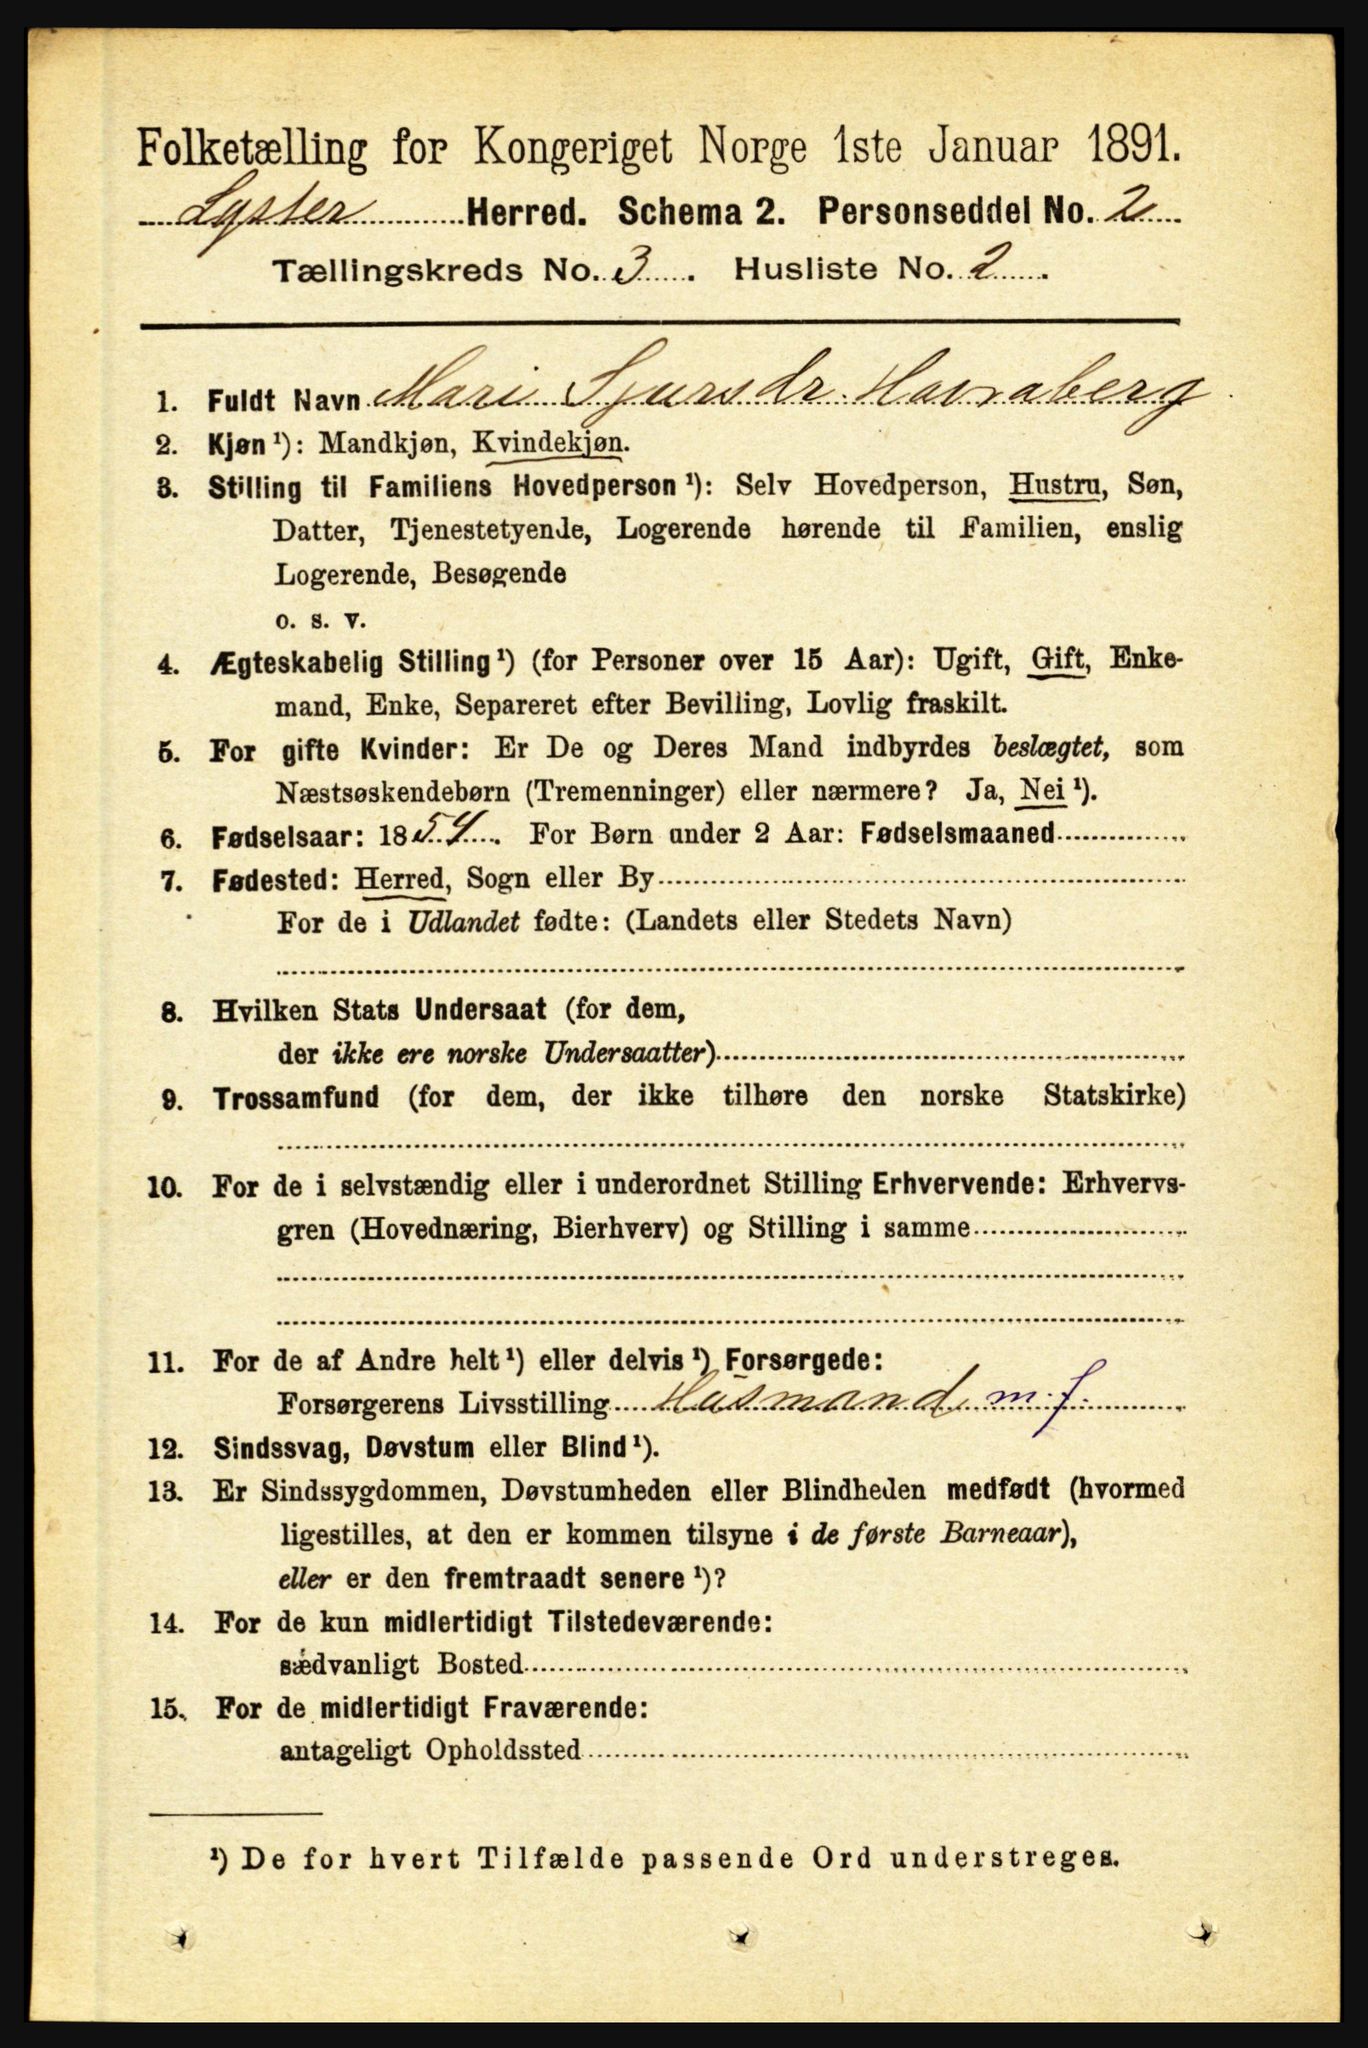 Folketælling for Kongeriget Norge 1ste Januar 1891.
Lyster Herred. Schema 2. Personseddel No. 2
Tællingskreds No. 3. Husliste No. 2.
1. Fuldt Navn Mari Sjursdr. Havraberg
2. Kjøn ¹): Mandkjøn, Kvindekjøn.
3. Stilling til Familiens Hovedperson ¹): Selv Hovedperson, Hustru, Søn,
Datter, Tjenestetyende, Logerende hørende til Familien, enslig
Logerende, Besøgende
o. s. v.
4. Ægteskabelig Stilling ¹) (for Personer over 15 Aar): Ugift, Gift, Enke-
mand, Enke, Separeret efter Bevilling, Lovlig fraskilt.
5. For gifte Kvinder: Er De og Deres Mand indbyrdes beslægtet, som
Næstsøskendebørn (Tremenninger) eller nærmere? Ja, Nei ¹).
6. Fødselsaar: 1854. For Børn under 2 Aar: Fødselsmaaned
7. Fødested: Herred, Sogn eller By
For de i Udlandet fødte: (Landets eller Stedets Navn)
8. Hvilken Stats Undersaat (for dem,
der ikke ere norske Undersaatter)
9. Trossamfund (for dem, der ikke tilhøre den norske Statskirke)
10. For de i selvstændig eller i underordnet Stilling Erhvervende: Erhvervs-
gren (Hovednæring, Bierhverv) og Stilling i samme
11. For de af Andre helt ¹) eller delvis ¹) Forsørgede:
Forsørgerens Livsstilling Husmand m. j.
12. Sindssvag, Døvstum eller Blind ¹).
13. Er Sindssygdommen, Døvstumheden eller Blindheden medfødt (hvormed
ligestilles, at den er kommen tilsyne i de første Barneaar),
eller er den fremtraadt senere ¹)?
14. For de kun midlertidigt Tilstedeværende:
sædvanligt Bosted
15. For de midlertidigt Fraværende:
antageligt Opholdssted
¹) De for hvert Tilfælde passende Ord understreges.